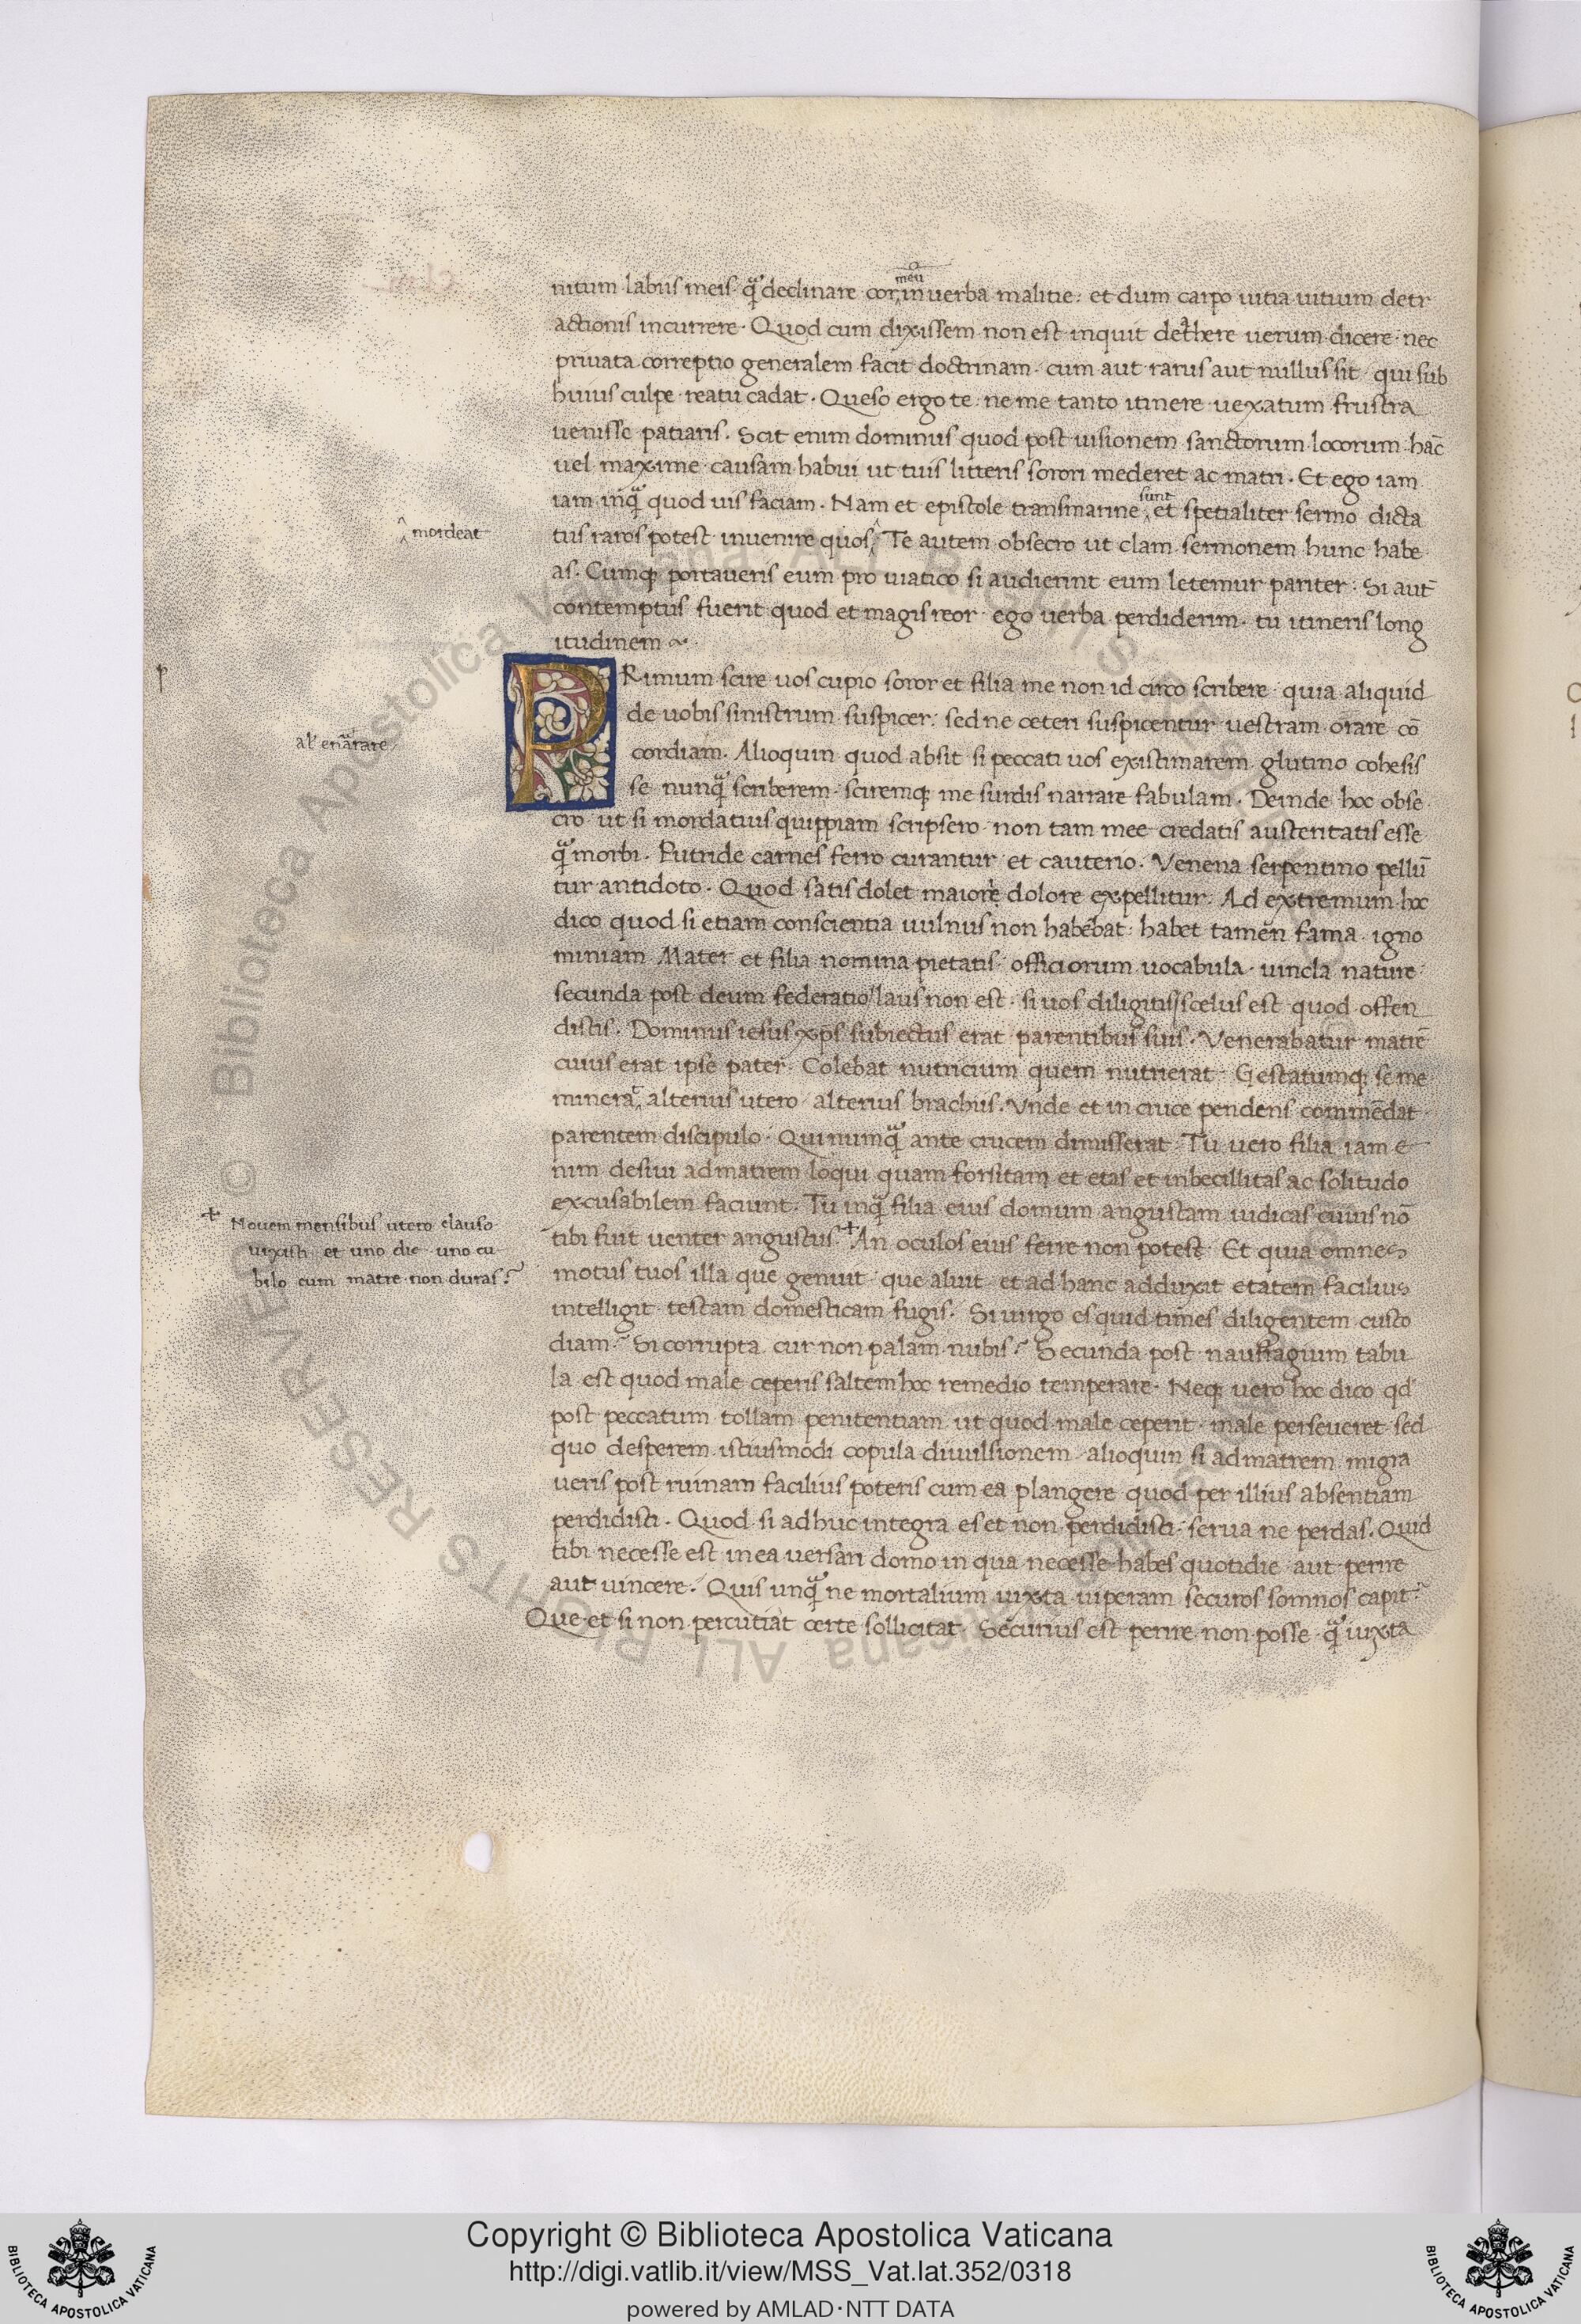 nitum labiis meis · qᷓ declinare cor meū in uerba malitie : et dum carpo uitia uitium detr
actionis incurrere · Quod cum dixissem non est inquit detᷓhere uerum dicere · nec
priuata correptio generalem facit doctrinam · cum aut rarus aut nullus sit · qui sub
huius culpe reatu cadat · Queso ergo te ne me tanto itinere uexatum frustra
uenisse patiaris · Scit enim dominus quod post uisionem sanctorum locorum hāc
uel maxime causam habui ut tuis litteris sorori mederet ac matri · Et ego iam
iam inqᷓ quod uis faciam · Nam et epistole transmarine sunt et spetialiter sermo dicta
tus raros potest inuenire quos ‸ Te autem obsecro ut clam sermonem hunc habe
^ mordeat
as · Cumq; portaueris eum pro uiatico si audierint eum letemur pariter : Si aut̄
contemptus fuerit quod et magis reor · ego uerba perdiderim · tu itineris long
itudinem ~ ·
p
PRimum scire uos cupio soror et filia me non id circo scribere quia aliquid
de uobis sinistrum suspicer : sed ne ceteri suspicentur uestram orare cō
al' enaᷓrare
cordiam · Alioquin quod absit si peccati uos existimarem glutino cohesis
se nunqᷓ scriberem · sciremq; me surdis narrare fabulam · Deinde hoc obse
cro ut si mordatius quippiam scripsero · non tam mee credatis austeritatis esse
qᷓ morbi · Putride carnes ferro curantur et cauterio · Venena serpentino pellū
tur antidoto · Quod satis dolet maiore dolore expellitur · Ad extremum hoc
dico quod si etiam conscientia uulnus non habebat : habet tamen fama igno
miniam Mater et filia nomina pietatis · officiorum uocabula · uincla nature
secunda post deum federatio / laus non est · si uos diligitis / scelus est quod offen
distis · Dominus iesus xp̄s subiectus erat parentibus suis · Venerabatur matrē
cuius erat ipse pater · Colebat nutricium quem nutrierat · Gestatumq; se me
minerat alterius utero · alterius brachiis · Vnde et in cruce pendens commēdat
parentem discipulo · Qui numqᷓ ante crucem dimisserat · Tu uero filia iam e
nim desiui ad matrem loqui quam forsitam et etas et inbecillitas ac solitudo
excusabilem faciunt · Tu inqᷓ filia eius domum angustam iudicas cuius nō
tibi fuit uenter angustus + An oculos eius ferre non potest Et quia omnes
+ Nouem mensibus utero clauso
uixisti et uno die uno cu
bilo cum matre non duras ?
motus tuos illa que genuit que aluit et ad hanc adduxit etatem facilius
intelligit testam domesticam fugis · Si uirgo es quid times diligentem custo
diam ? Si corrupta cur non palam nubis ? Secunda post naufragium tabu
la est quod male ceperis saltem hoc remedio temperare · Neq; uero hoc dico qd'
post peccatum tollam penitentiam ut quod male ceperit male perseueret sed
quo desperem istiusmodi copula diuulsionem · alioquin si ad matrem migra
ueris post ruinam facilius poteris cum ea plangere quod per illius absentiam
perdidisti · Quod si adhuc integra es et non perdidisti · serua ne perdas · Quid
tibi necesse est in ea uersari domo in qua necesse habes quotidie aut perire
aut uincere ? Quis unqᷓ ne mortalium iuxta uiperam securos somnos capit ?
Que et si non percutiat certe sollicitat · Securius est perire non posse qᷓ iuxta
Copyright © Biblioteca Apostolica Vaticana
http://digi.vatlib.it/view/MSS_Vat.lat.352/0318
powered by AMLAD·NTT DATA
BIBLIOTECA APOSTOLICA VATICANA
BIBLIOTECA APOSTOLICA VATICANA
© Biblioteca Apostolica Vaticana ALL RIGHTS RESERVED